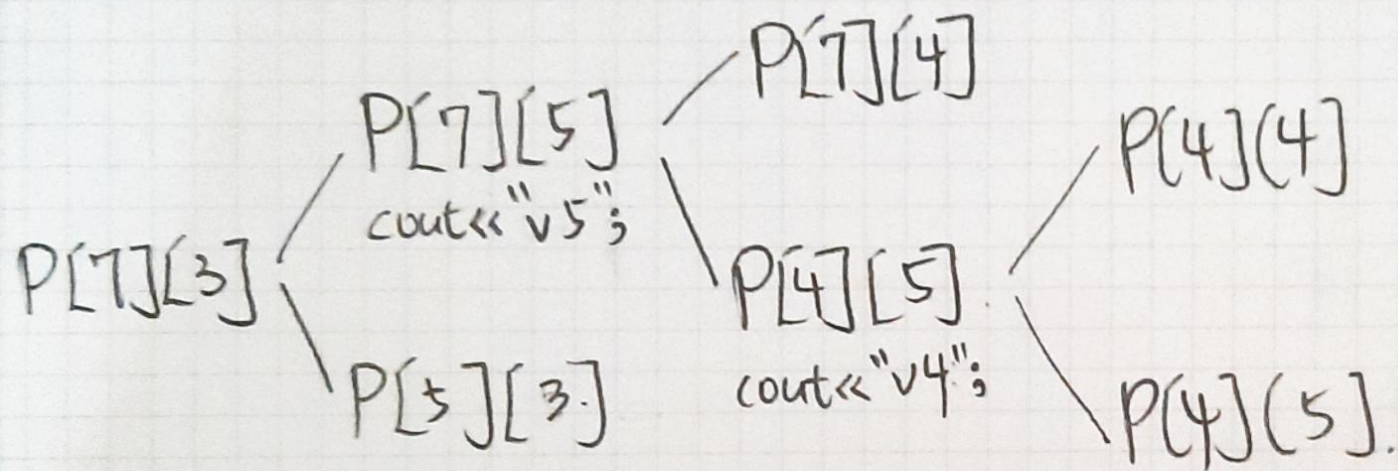 P[7][3]
P[7][5]
cout<<"v5";
P[5][3]
P[7][4]
P[4][5]
cout<<"v4";
P[4](4]
P[4](5]